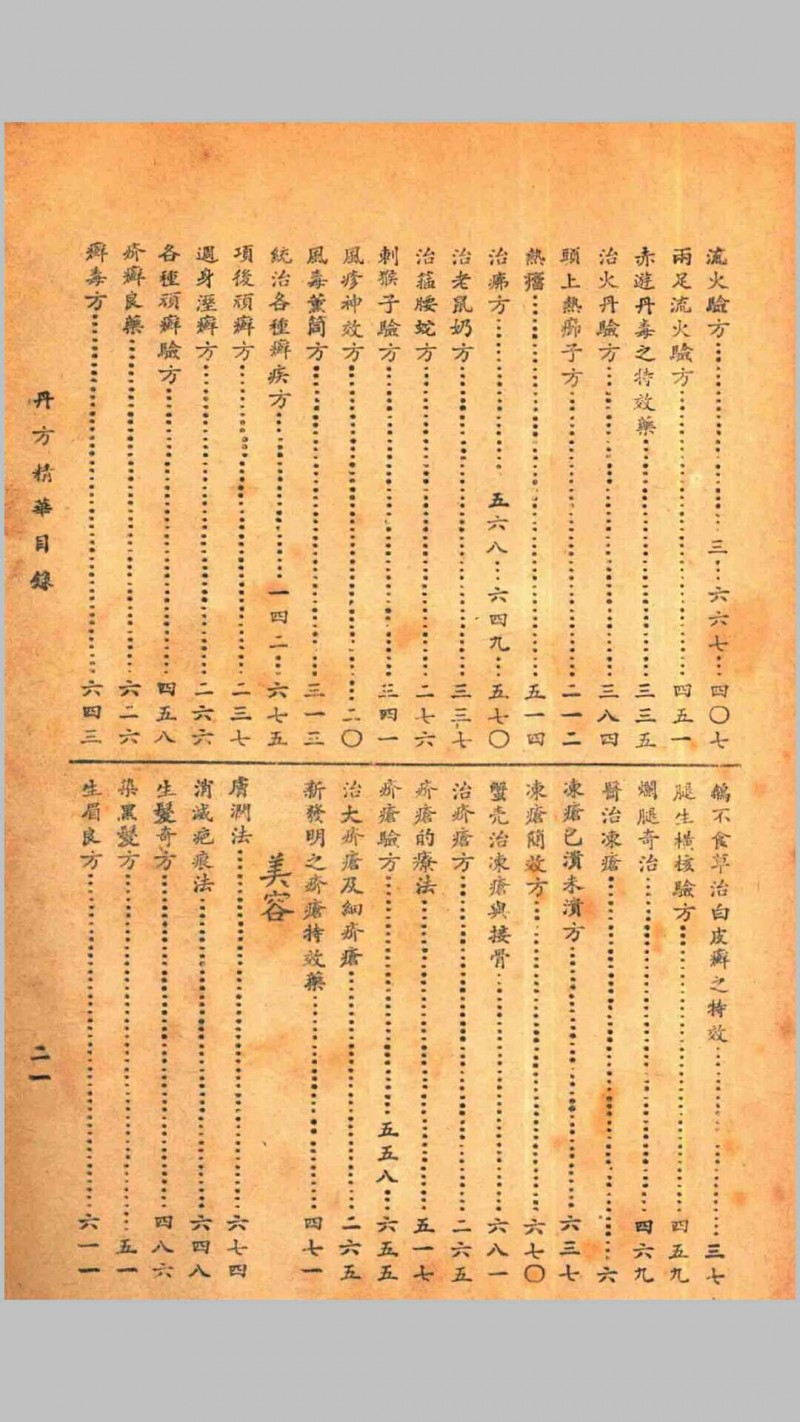 流火驗方…三…六六七…四〇七
兩足流火驗方…四五一
赤遊丹毒之特效藥…三三五
治火丹驗方…三八四
頭上熱癤子方…二一二
熱癤…五一四
治疿方…五六八…六四九…五七〇
治老鼠奶方…三三七
治箍腰蛇方…二七六
刺猴子驗方…三四一
風疹神效方…二〇
風毒薰筒方…三一三
統治各種癬疾方…一四二…六七五
項後頑癬方…二三七
週身溼癬方…二六六
各種頑癬驗方…四五八
疥癬良藥…六二六
癬毒方…六四三
鵝不食草治白皮癬之特效…三七
腿生橫核驗方…四五九
爛腿奇治…四六九
醫治凍瘡…六
凍瘡已潰未潰方…六三七
凍瘡簡效方…六七〇
蟹壳治凍瘡與接骨…六八一
治疥瘡方…二六五
疥瘡的療法…五一七
疥瘡驗方…五五八…六五五
治大疥瘡及細疥瘡…二六五
新發明之疥瘡特效藥…四七一
美容
膚潤法…六七四
消滅疤痕法…六四八
生髮奇方…四八六
染黑髮方…五一
生眉良方…六一一
丹方精華目錄
二一